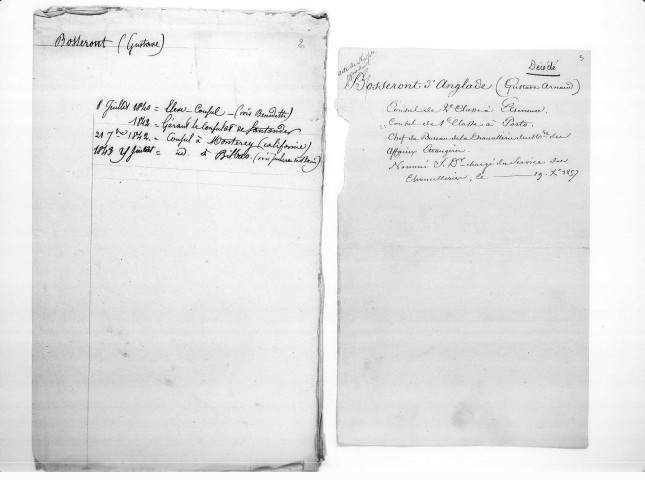 Bosseront (Gustave)
2
1 Juillet 1840 = Elève-Consul - (voir Benedetti)
1842 - Gérant le Consulat de Santander
21 7bre 1842 = Consul à Monterey (californie)
1843 Juillet = id. à Bilbao (voir
3
Décédé
Bosseront d'Anglade (Gustave Arnaud)
Consul de 2e Classe à
Consul de 1e Classe à Porto.
Chef du Bureau de la Chancellerie du Mère des
Affaires Etrangères.
Nommé S. Dr chargé du Service des
Chancelleries, le 19 Xe 1857